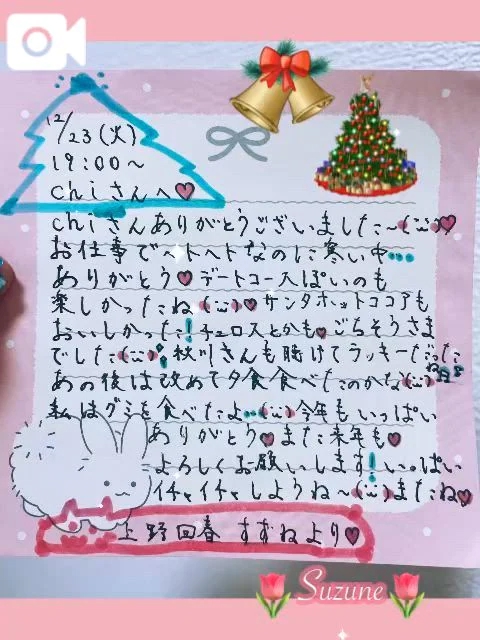 12/23(火)
19:00〜
chiさんへ♥
chiさんありがとうございました〜(¨̮)♥
お仕事でヘトヘトなのに寒い中…
ありがとう♥デートコースぽいのも
楽しかったね(¨̮)♥サンタホットココアも
おいしかった!チュロスとかも♥ごちそうさま
でした(¨̮)!秋川さんも時けてラッキーだったね♪
あの後は改めて夕食食べたのかな(¨̮)
私はグミを食べたよ…(¨̮)今年もいっぱい
ありがとう♥また来年も♥
よろしくお願いします!いっぱい
イチャイチャしようね〜(¨̮)またね♥
上野回春 すずねより♥
Suzune